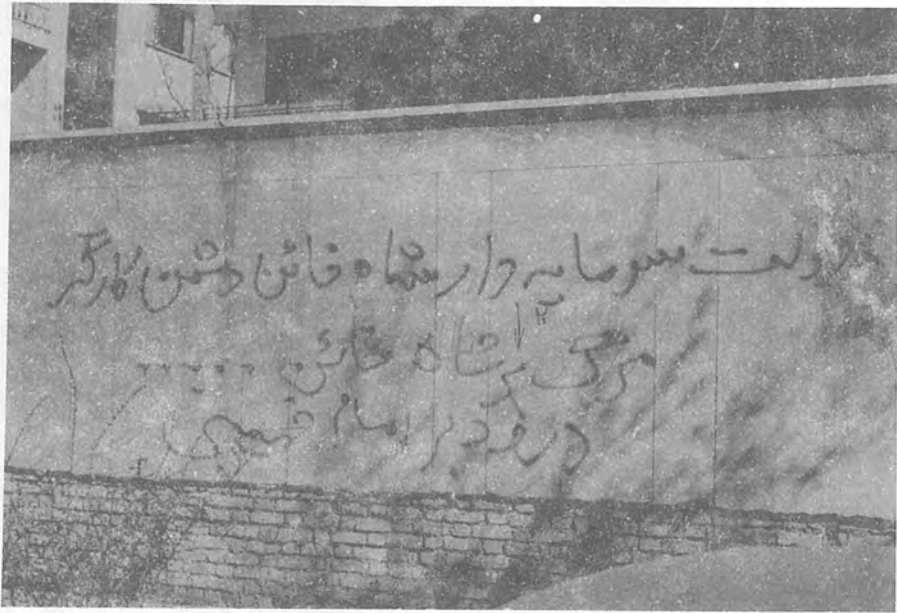 دولت سرمایه دار شاه خائن دشمن کارگر
مرگ بر شاه خائن ......
درود بر امام خمینی